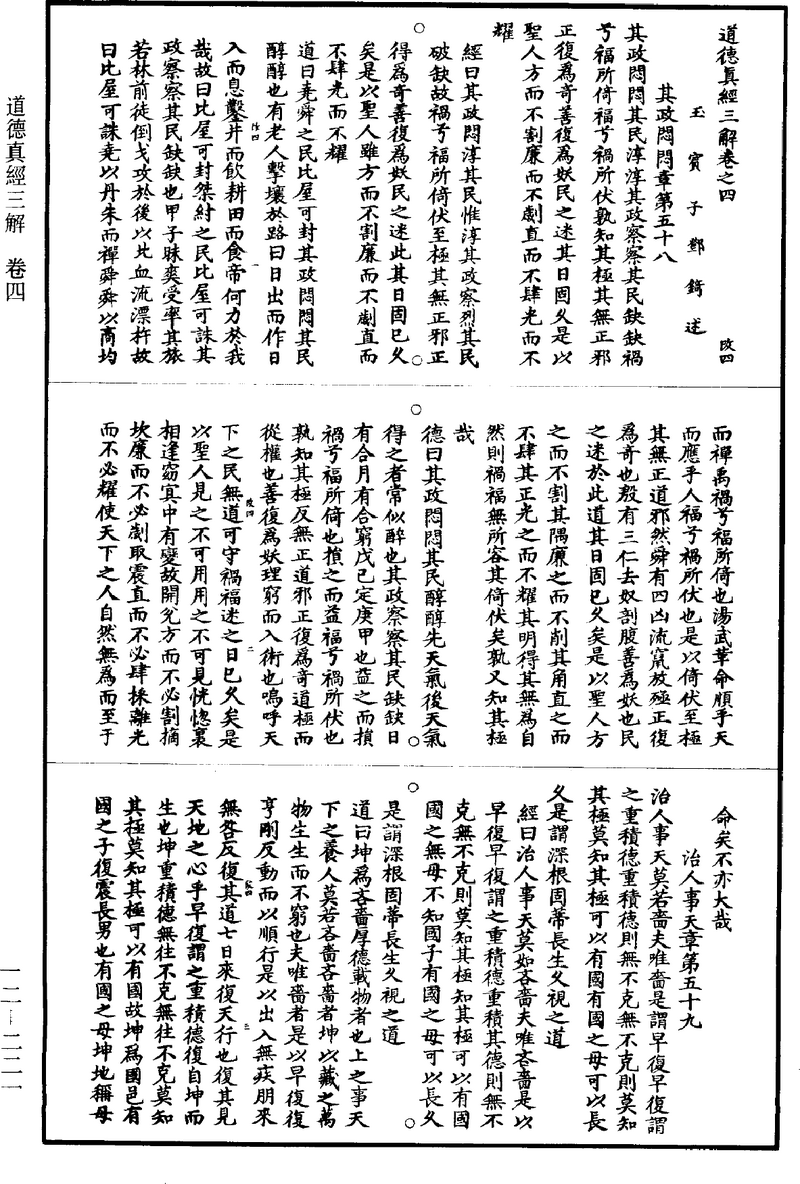 道德真經三解 卷四
道德真經三解卷之四
玉賓子鄧錡述 改四
其政悶悶章第五十八
其政悶悶其民淳淳其政察察其民缺缺禍
兮福所倚福兮禍所伏孰知其極其無正邪
正復為奇善復為妖民之迷其日固久是以
聖人方而不割廉而不劌直而不肆光而不
耀
經曰其政悶淳其民惟淳其政察烈其民
破缺故禍兮福所倚伏至極其無正邪正
得為奇善復為妖民之迷此其日固已久
矣是以聖人雖方而不割廉而不劌直而
不肆光而不耀
道曰堯舜之民比屋可封其政悶悶其民
醇醇也有老人擊壤於路曰日出而作日
入而息鑿井而飲耕田而食帝何力於我
哉故曰比屋可封桀紂之民比屋可誅其
政察察其民缺缺也甲子昧爽受率其旅
若林前徒倒戈攻於後以北血流漂杵故
曰比屋可誅堯以丹朱而禪舜舜以商均
而禪禹禍兮福所倚也湯武革命順乎天
而應乎人福兮禍所伏也是以倚伏至極
其無正道邪然舜有四凶流竄放殛正復
為奇也殷有三仁去奴剖腹善為妖也民
之迷於此道其日固已久矣是以聖人方
之而不割其隅廉之而不削其角直之而
不肆其正光之而不耀其明得其無為自
然則禍福無所容其倚伏矣孰又知其極
哉
德曰其政悶悶其民醇醇先天氣後天氣
得之者常似醉也其政察察其民缺缺日
有合月有合窮戊己定庚甲也益之而損
禍兮福所倚也損之而益福兮禍所伏也
孰知其極反無正道邪正復為奇道極而
從權也善復為妖理窮而入術也嗚呼天
下之民無道可守禍福迷之日已久矣是
以聖人見之不可用用之不可見恍惚裹
相逢窈冥中有變故開兌方而不必割摘
坎廉而不必劌取震直而不必肆採離光
而不必耀使天下之人自然無為而至于
命矣不亦大哉
治人事天章第五十九
治人事天莫若嗇夫唯嗇是謂早復早復謂
之重積德重積德則無不克無不克則莫知
其極莫知其極可以有國有國之母可以長
久是謂深根固蒂長生久視之道
經曰治人事天莫如吝嗇夫唯吝嗇是以
早復早復謂之重積德重積其德則無不
克無不克則莫知其極知其極可以有國
國之無母不知國子有國之母可以長久
是謂深根固蒂長生久視之道
道曰坤為吝嗇厚德載物者也上之事天
下之養人莫若吝嗇吝嗇者坤以藏之萬
物生生而不窮也夫唯嗇者是以早復復
亨剛反動而以順行是以出入無疾朋來
無咎反復其道七日來復天行也復其見
天地之心乎早復謂之重積德復自坤而
生也坤重積德無往不克無往不克莫知
其極莫知其極可以有國故坤為國邑有
國之子復震長男也有國之母坤地稱母
一二—二二一